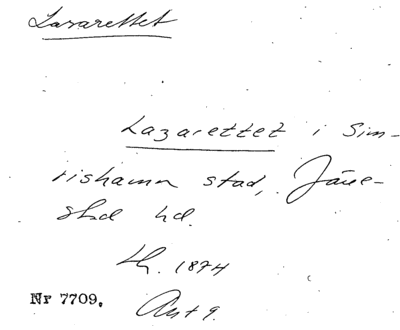 Lasarettet
Lazarettet i Sim-
rishamn stad, Järre-
stad hd.
1874
Nr 7709.